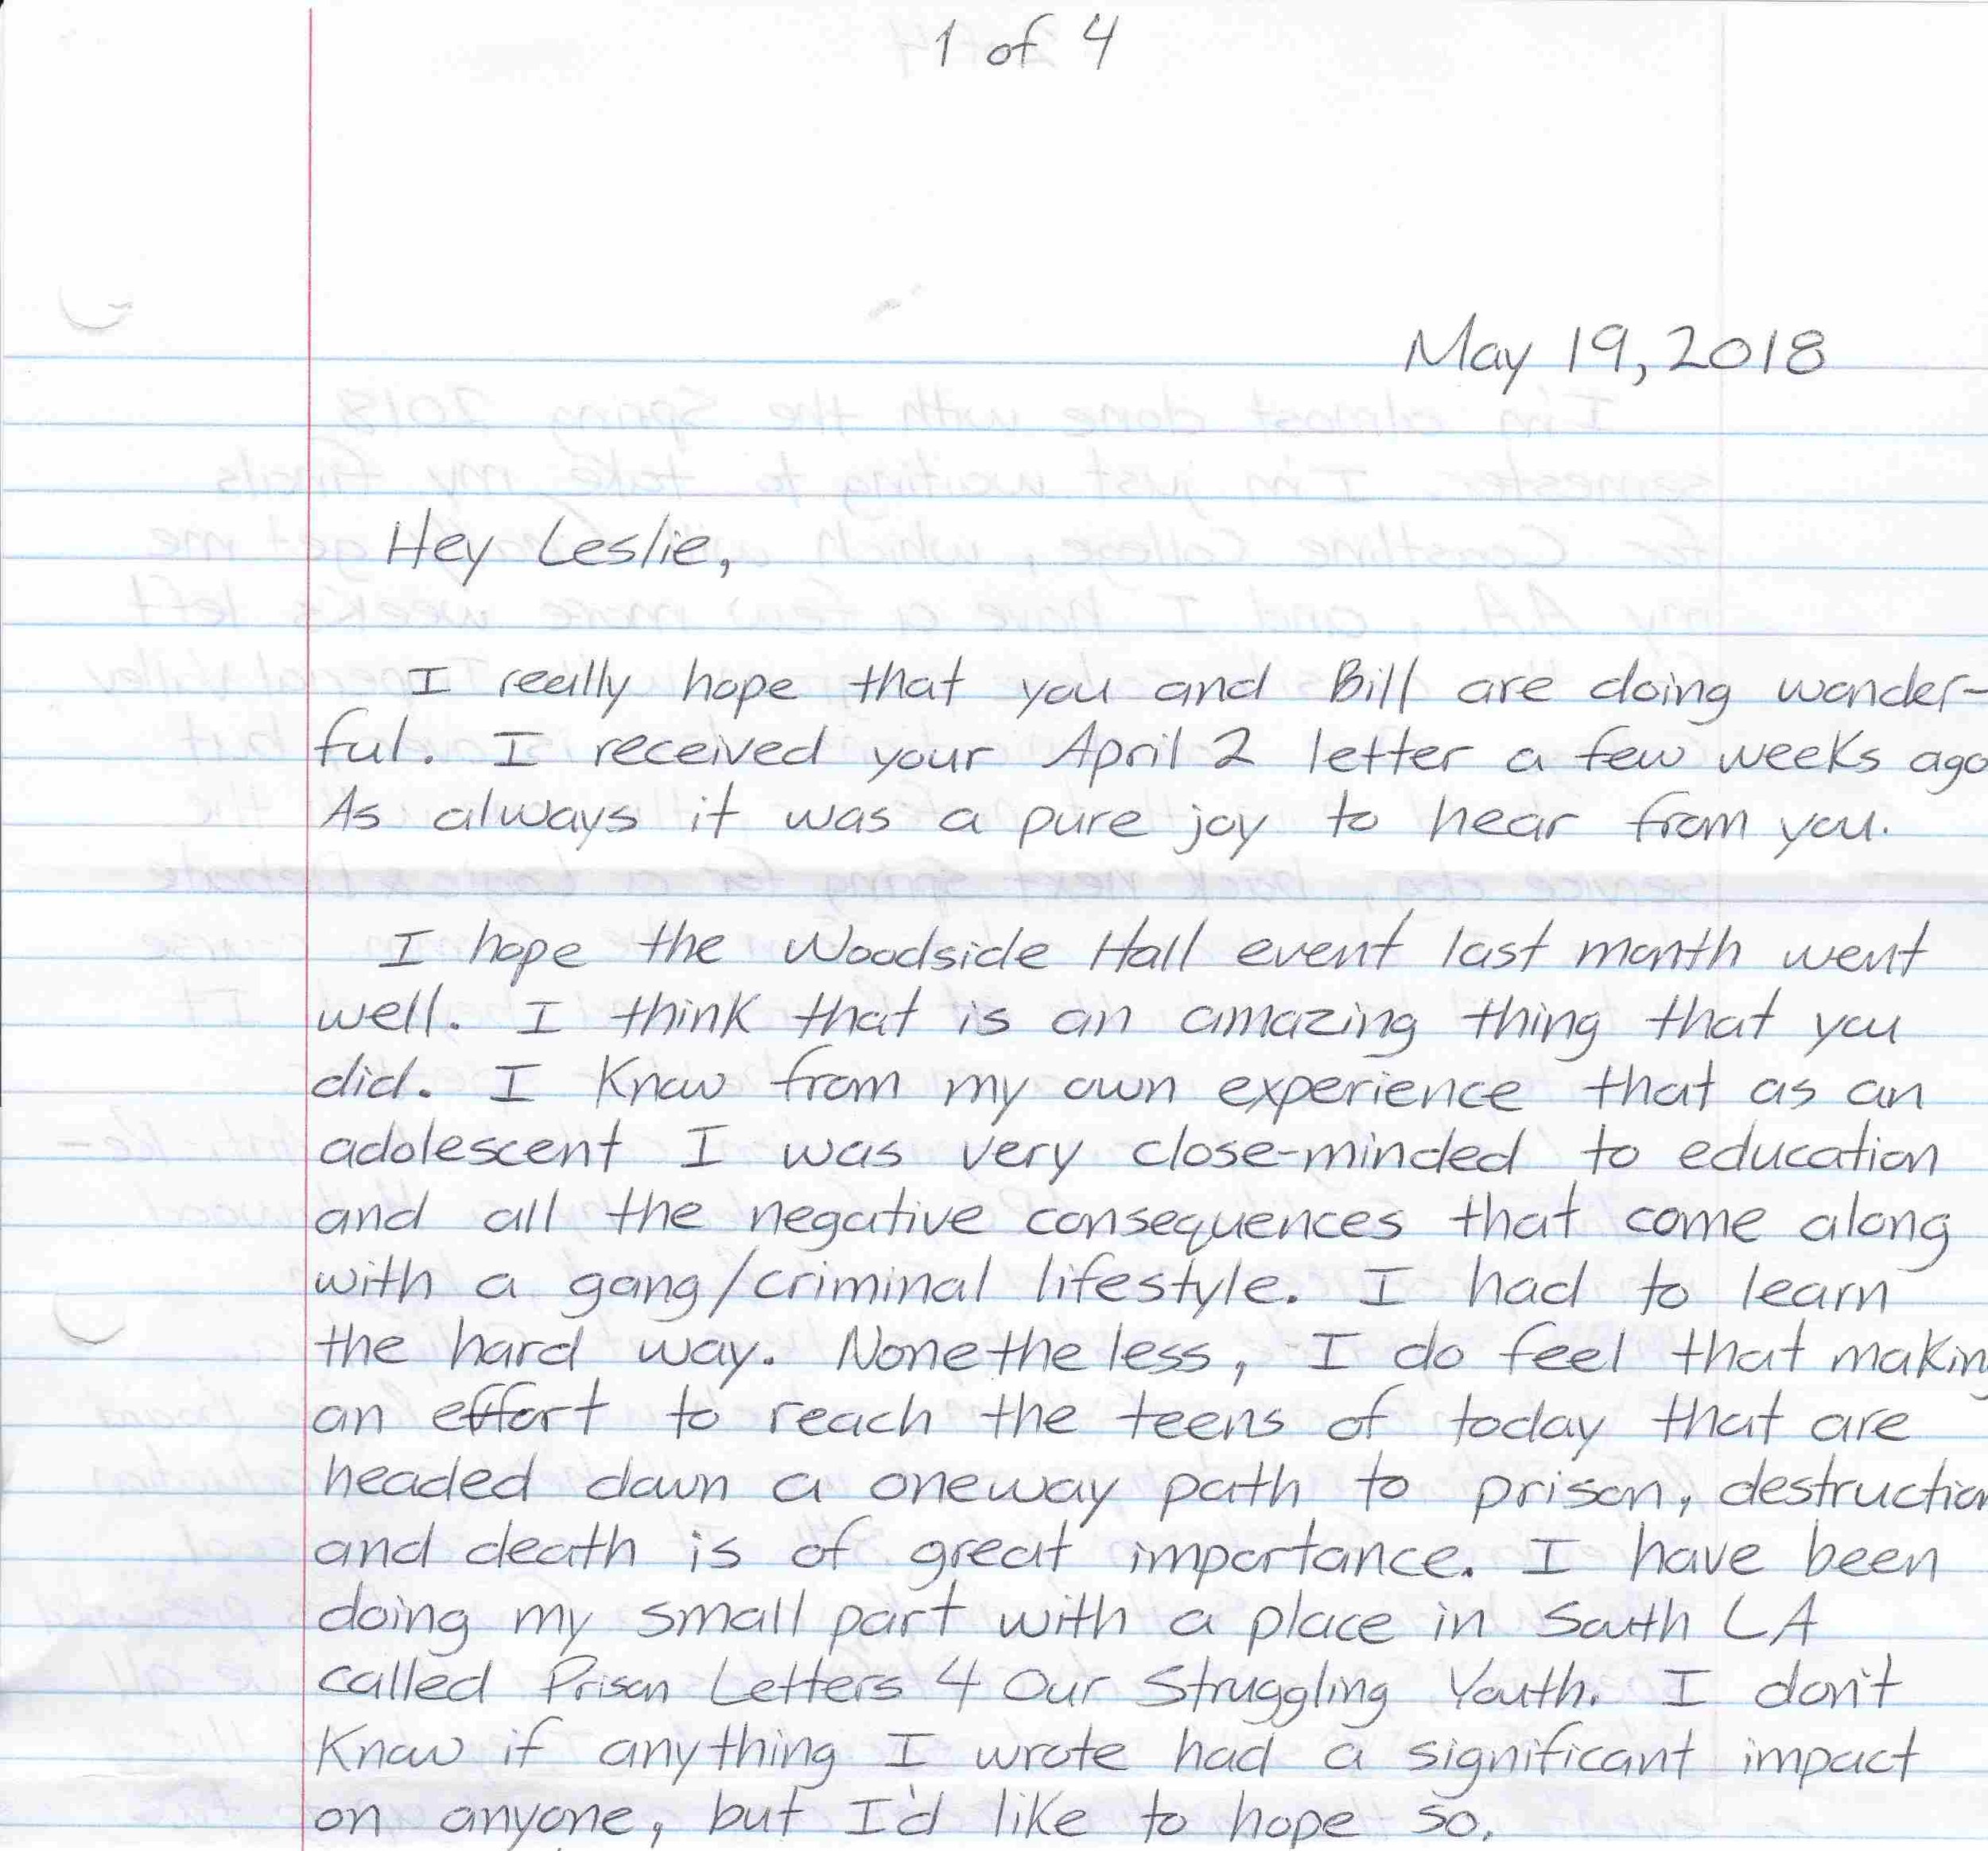 1 of 4
May 19, 2018
Hey Leslie,
I really hope that you and Bill are doing wonder-
ful. I received your April 2 letter a few weeks ago
As always it was a pure joy to hear from you.
I hope the Woodside Hall event last month went
well. I think that is an amazing thing that you
did. I know from my own experience that as an
adolescent I was very close-minded to education
and all the negative consequences that come along
with a gang/criminal lifestyle. I had to learn
the hard way. Nonetheless, I do feel that making
an effort to reach the teens of today that are
headed down a oneway path to prison, destruction
and death is of great importance. I have been
doing my small part with a place in South LA
called Prison Letters 4 Our Struggling Youth. I don't
know if anything I wrote had a significant impact
on anyone, but I'd like to hope so.